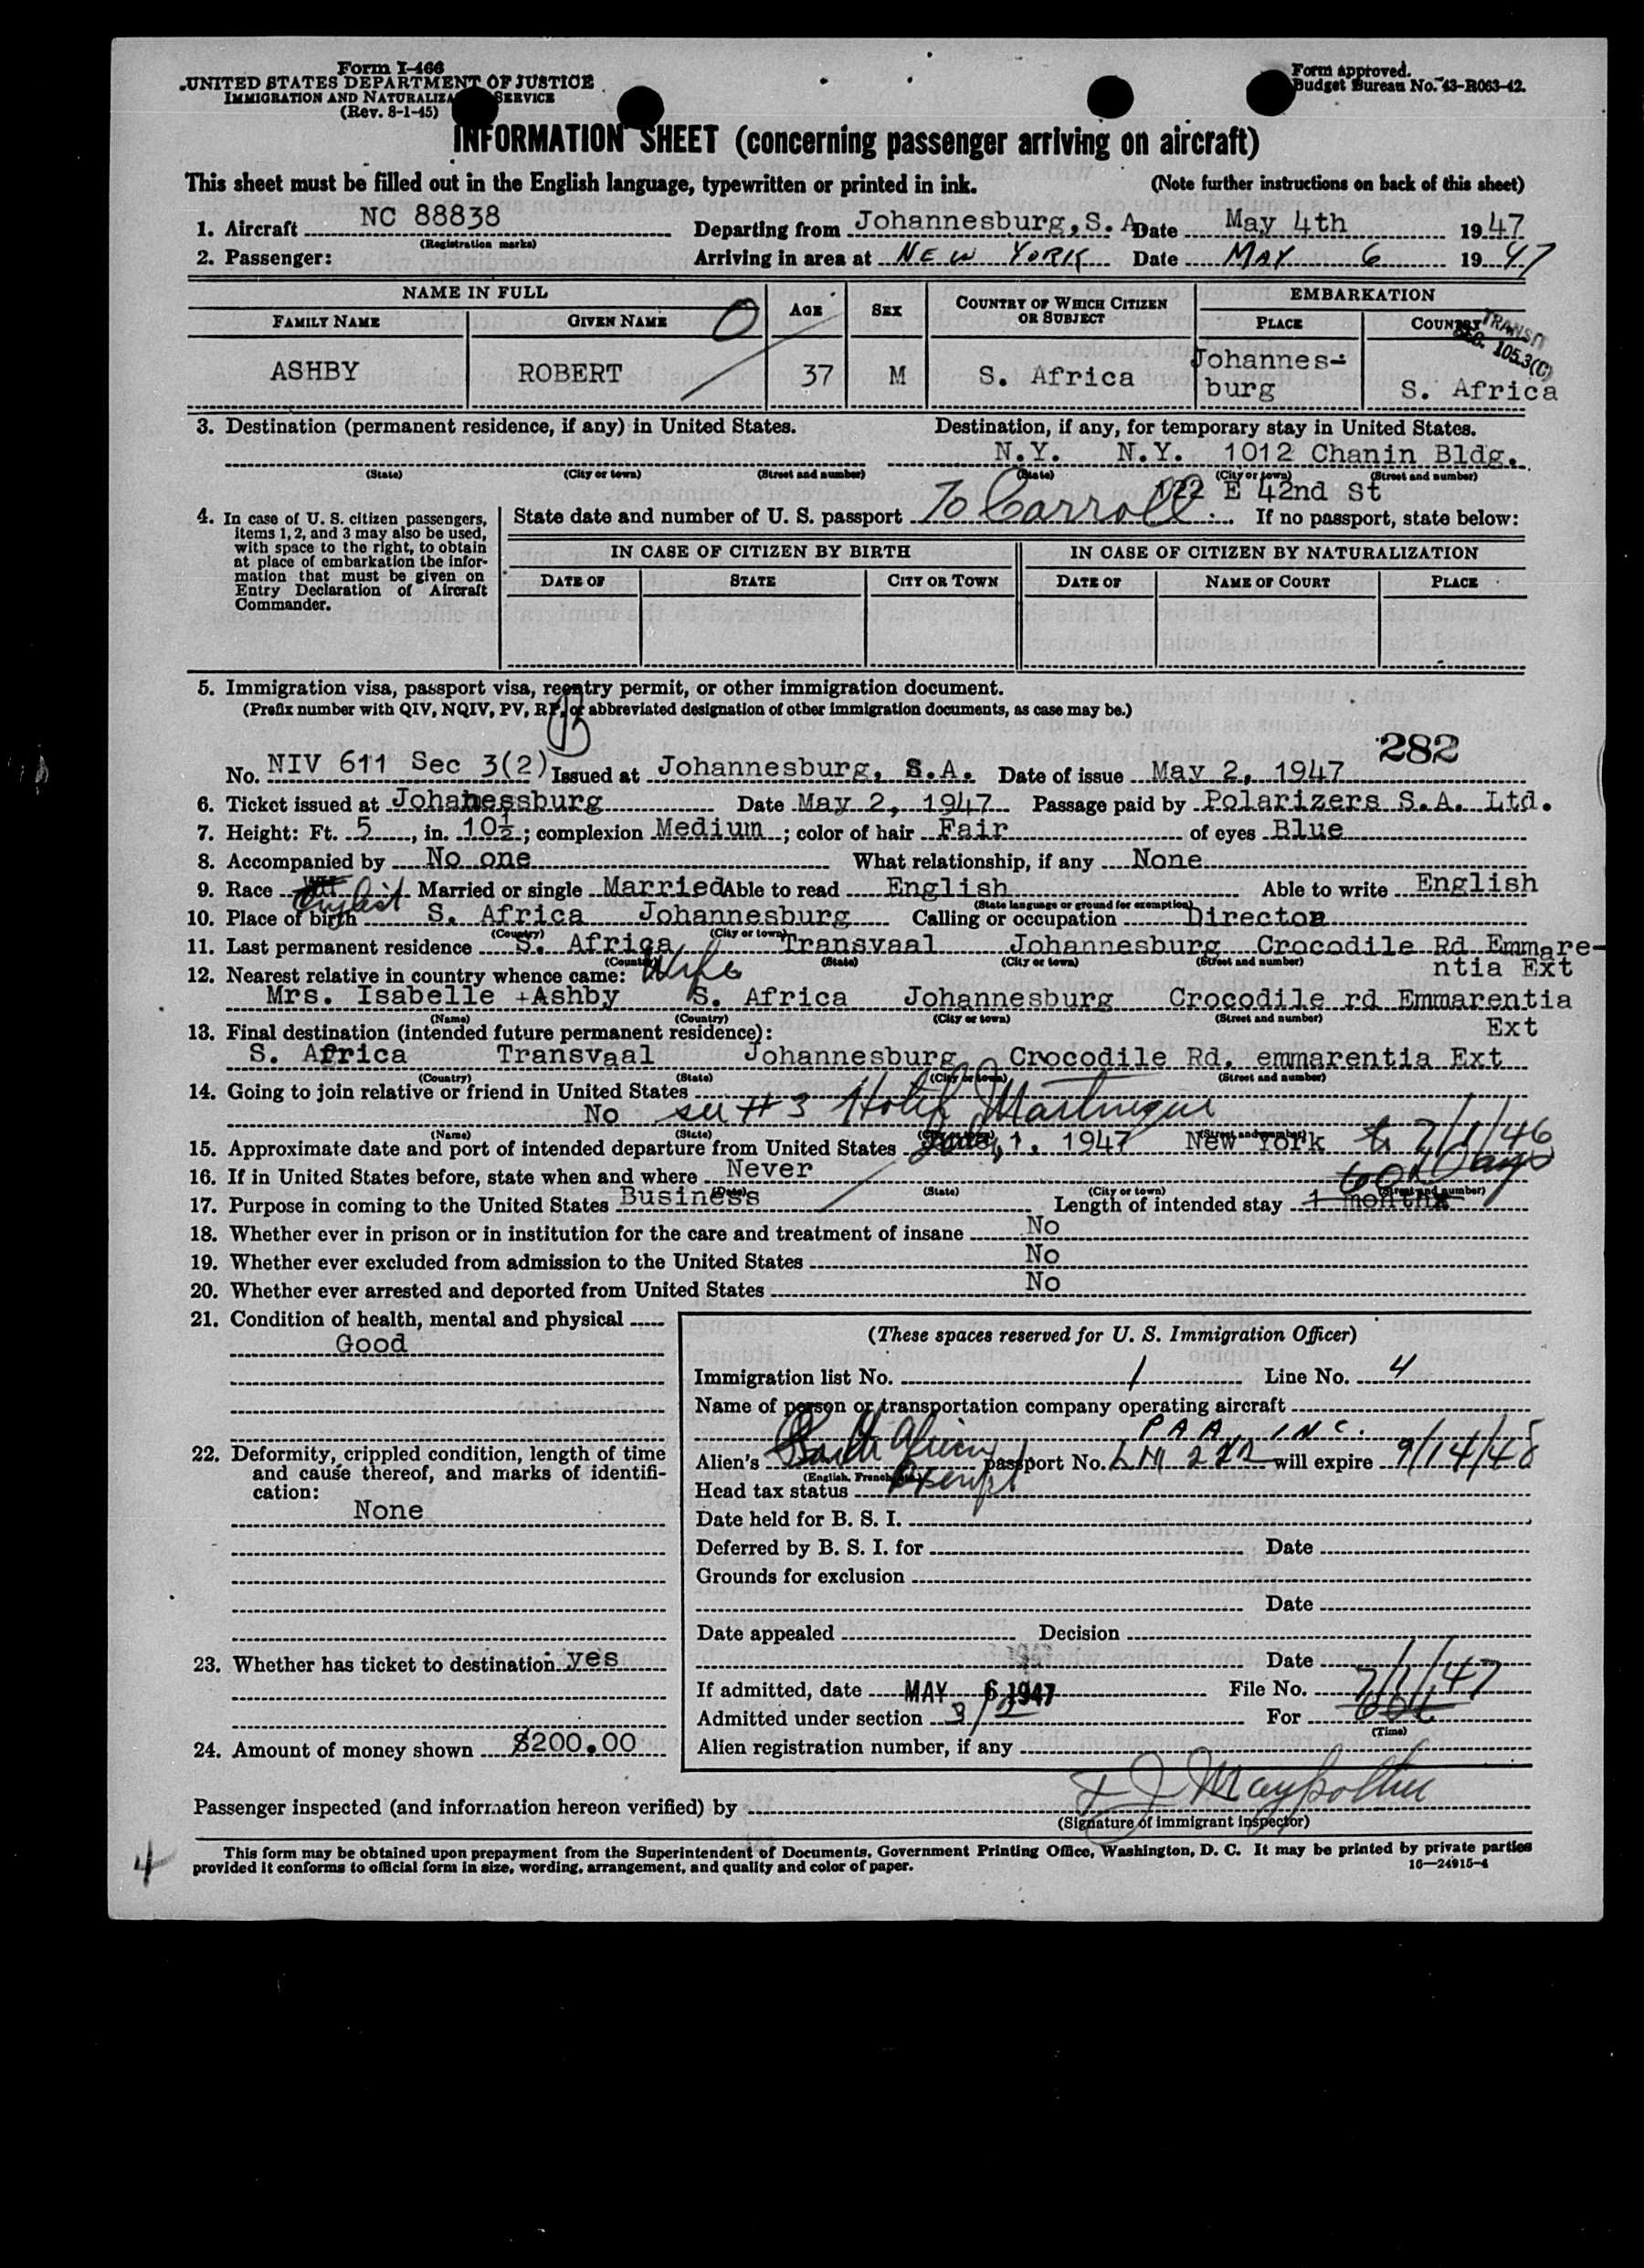 Form I-466
UNITED STATES DEPARTMENT OF JUSTICE
IMMIGRATION AND NATURALIZATION SERVICE
(Rev. 8-1-45)
Form approved.
Budget Bureau No. 43-R063-42.
INFORMATION SHEET (concerning passenger arriving on aircraft)
This sheet must be filled out in the English language, typewritten or printed in ink. (Note further instructions on back of this sheet)
1. Aircraft NC 88838 Departing from Johannesburg, S. A Date May 4th 1947
(Registration marks)
2. Passenger: Arriving in area at NEW YORK Date MAY 6 1947
NAME IN FULL AGE SEX COUNTRY OF WHICH CITIZEN OR SUBJECT EMBARKATION
FAMILY NAME GIVEN NAME PLACE COUNTRY
TRANSIT
SEC. 105.3(C)
ASHBY ROBERT 37 M S. Africa Johannes-
burg S. Africa
3. Destination (permanent residence, if any) in United States. Destination, if any, for temporary stay in United States.
N.Y. N.Y. 1012 Chanin Bldg.
(State) (City or town) (Street and number) (State) (City or town) (Street and number)
122 E 42nd St
4. In case of U. S. citizen passengers, items 1, 2, and 3 may also be used, with space to the right, to obtain at place of embarkation the information that must be given on Entry Declaration of Aircraft Commander.
State date and number of U. S. passport To Carroll If no passport, state below:
IN CASE OF CITIZEN BY BIRTH IN CASE OF CITIZEN BY NATURALIZATION
DATE OF STATE CITY OR TOWN DATE OF NAME OF COURT PLACE
5. Immigration visa, passport visa, reentry permit, or other immigration document.
(Prefix number with QIV, NQIV, PV, RP, or abbreviated designation of other immigration documents, as case may be.)
282
No. NIV 611 Sec 3(2) Issued at Johannesburg, S.A. Date of issue May 2, 1947
6. Ticket issued at Johanessburg Date May 2, 1947 Passage paid by Polarizers S.A. Ltd.
7. Height: Ft. 5, in. 10½; complexion Medium; color of hair Fair of eyes Blue
8. Accompanied by No one What relationship, if any None
9. Race English Married or single Married Able to read English Able to write English
(State language or ground for exemption)
10. Place of birth S. Africa Johannesburg Calling or occupation Director
(Country) (City or town)
11. Last permanent residence S. Africa Transvaal Johannesburg Crocodile Rd Emmare-
ntia Ext
(Country) (State) (City or town) (Street and number)
12. Nearest relative in country whence came: Wife
Mrs. Isabelle +Ashby S. Africa Johannesburg Crocodile rd Emmarentia
Ext
(Name) (Country) (City or town) (Street and number)
13. Final destination (intended future permanent residence):
S. Africa Transvaal Johannesburg Crocodile Rd. emmarentia Ext
(Country) (State) (City or town) (Street and number)
14. Going to join relative or friend in United States
No see #3 Hotel Martinique
(Name) (State) (City or town) (Street and number)
15. Approximate date and port of intended departure from United States 1. 1947 New York to 7/1/46
16. If in United States before, state when and where Never
(Date) (State) (City or town) (Street and number)
60 Days
17. Purpose in coming to the United States Business Length of intended stay 1 month
18. Whether ever in prison or in institution for the care and treatment of insane No
19. Whether ever excluded from admission to the United States No
20. Whether ever arrested and deported from United States No
21. Condition of health, mental and physical
Good
22. Deformity, crippled condition, length of time and cause thereof, and marks of identification:
None
23. Whether has ticket to destination yes
24. Amount of money shown $200.00
(These spaces reserved for U. S. Immigration Officer)
Immigration list No. 1 Line No. 4
Name of person or transportation company operating aircraft
PAA, INC.
Alien's South African passport No. will expire 9/14/48
(English, French, etc.)
Head tax status Exempt
Date held for B. S. I.
Deferred by B. S. I. for Date
Grounds for exclusion
Date
Date appealed Decision
Date
If admitted, date MAY 6 1947 File No. 7/1/47
Admitted under section 3/2 For
(Time)
Alien registration number, if any
Passenger inspected (and information hereon verified) by
(Signature of immigrant inspector)
4
This form may be obtained upon prepayment from the Superintendent of Documents, Government Printing Office, Washington, D. C. It may be printed by private parties
provided it conforms to official form in size, wording, arrangement, and quality and color of paper. 16—24915-4